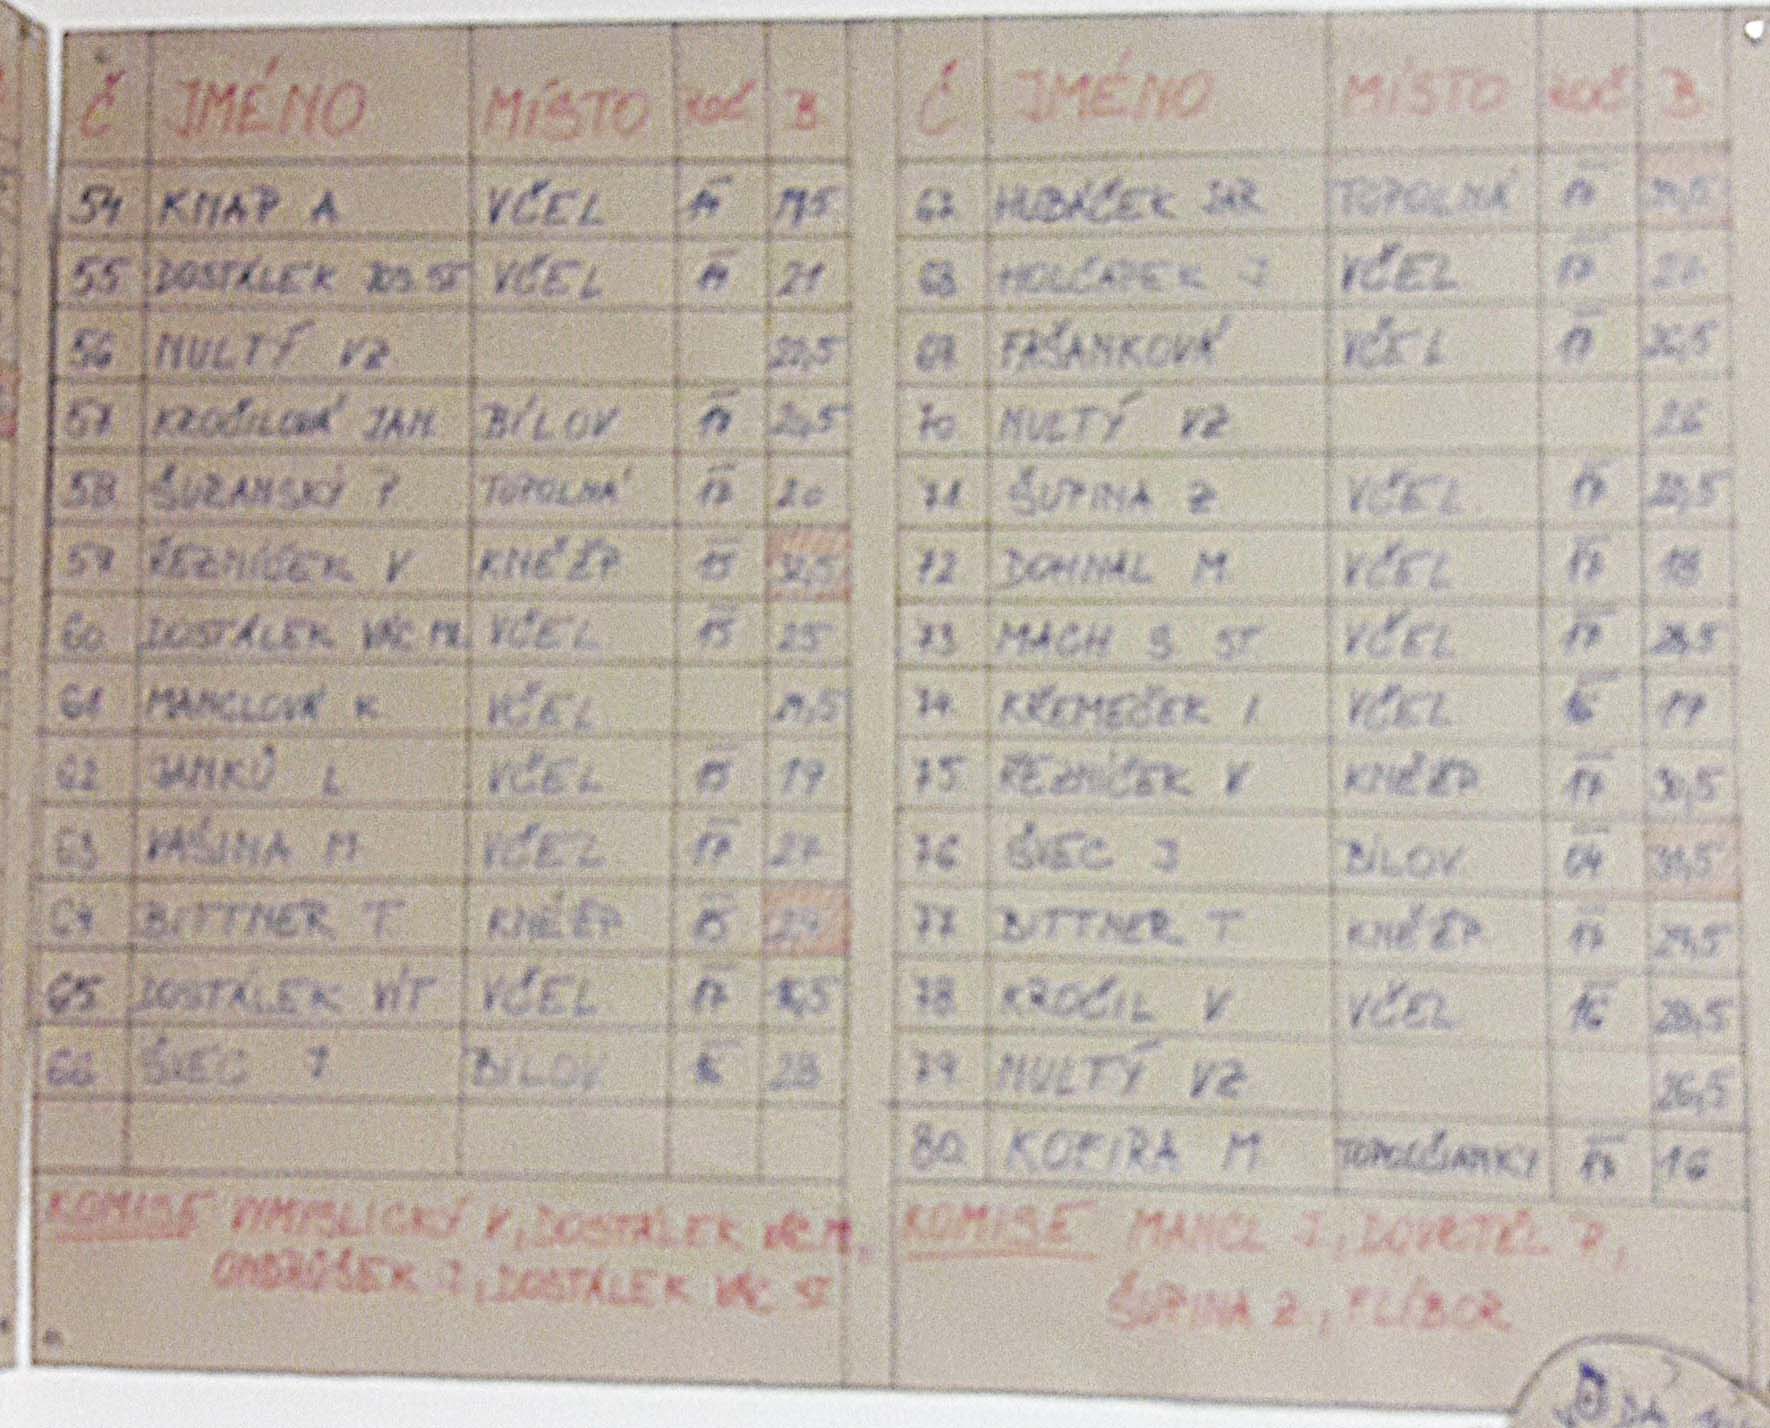 Č JMÉNO MÍSTO ROČ B
54 KNAP A VČEL 19,5
55 DOSTÁLEK JOS. ST VČEL 21
56 NULTÝ VZ 20,5
57 KROČILOVÁ JAN. BÍLOV 17 20,5
58 ŠURANSKÝ P TOPOLNÁ 17 20
59 ŘEZNÍČEK V KNĚŽP 15 32,5
60 DOSTÁLEK VÁC ML VČEL 15 25
61 MANCLOVÁ K VČEL 19,5
62 JANKŮ L VČEL 15 19
63 VAŠINA M VČEL 17 27
64 BITTNER T KNĚŽP 15
65 DOSTÁLEK VÍT VČEL 17
66 ŠVEC J BÍLOV 28
KOMISE DOSTÁLEK VÁC M,
ONDRŮŠEK J, DOSTÁLEK VÁC ST
Č JMÉNO MÍSTO ROČ B
67 HUBÁČEK JAR TOPOLNÁ 17
68 HOLČAPEK J VČEL 17
69 FAŠANKOVÁ VČEL 17 26,5
70 NULTÝ VZ 26
71 ŠUPINA Z VČEL 17
72 DOHNAL M VČEL 17 18
73 MACH S. ST VČEL 17
74 KŘEMEČEK I. VČEL 17
75 ŘEZNÍČEK V KNĚŽP 17 30,5
76 ŠVEC J BÍLOV
77 BITTNER T KNĚŽP 17 29,5
78 KROČIL V VČEL 16 28,5
79 NULTÝ VZ 26,5
80 KOPIRA M TOPOLČIANKY 17 16
KOMISE MANCL J, DOVRTĚL P,
ŠUPINA Z, FLÍBOR